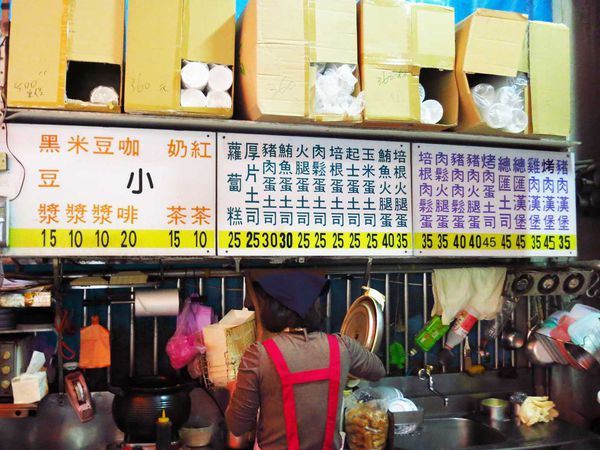 紅茶 10
奶茶 15
小
咖啡 20
豆漿 10
米漿 10
黑豆漿 15
培根火腿蛋 35
鮪魚火腿蛋 40
玉米蛋土司 25
起士蛋土司 25
培根蛋土司 25
肉鬆蛋土司 25
火腿蛋土司 25
鮪魚蛋土司 30
豬肉蛋土司 30
厚片土司 25
蘿蔔糕 25
豬肉漢堡 35
烤肉漢堡 45
雞肉漢堡 35
總匯漢堡 45
總匯土司 45
烤肉蛋土司 45
豬肉火腿蛋 40
豬肉肉鬆蛋 40
肉鬆火腿蛋 35
培根肉鬆蛋 35
360
360